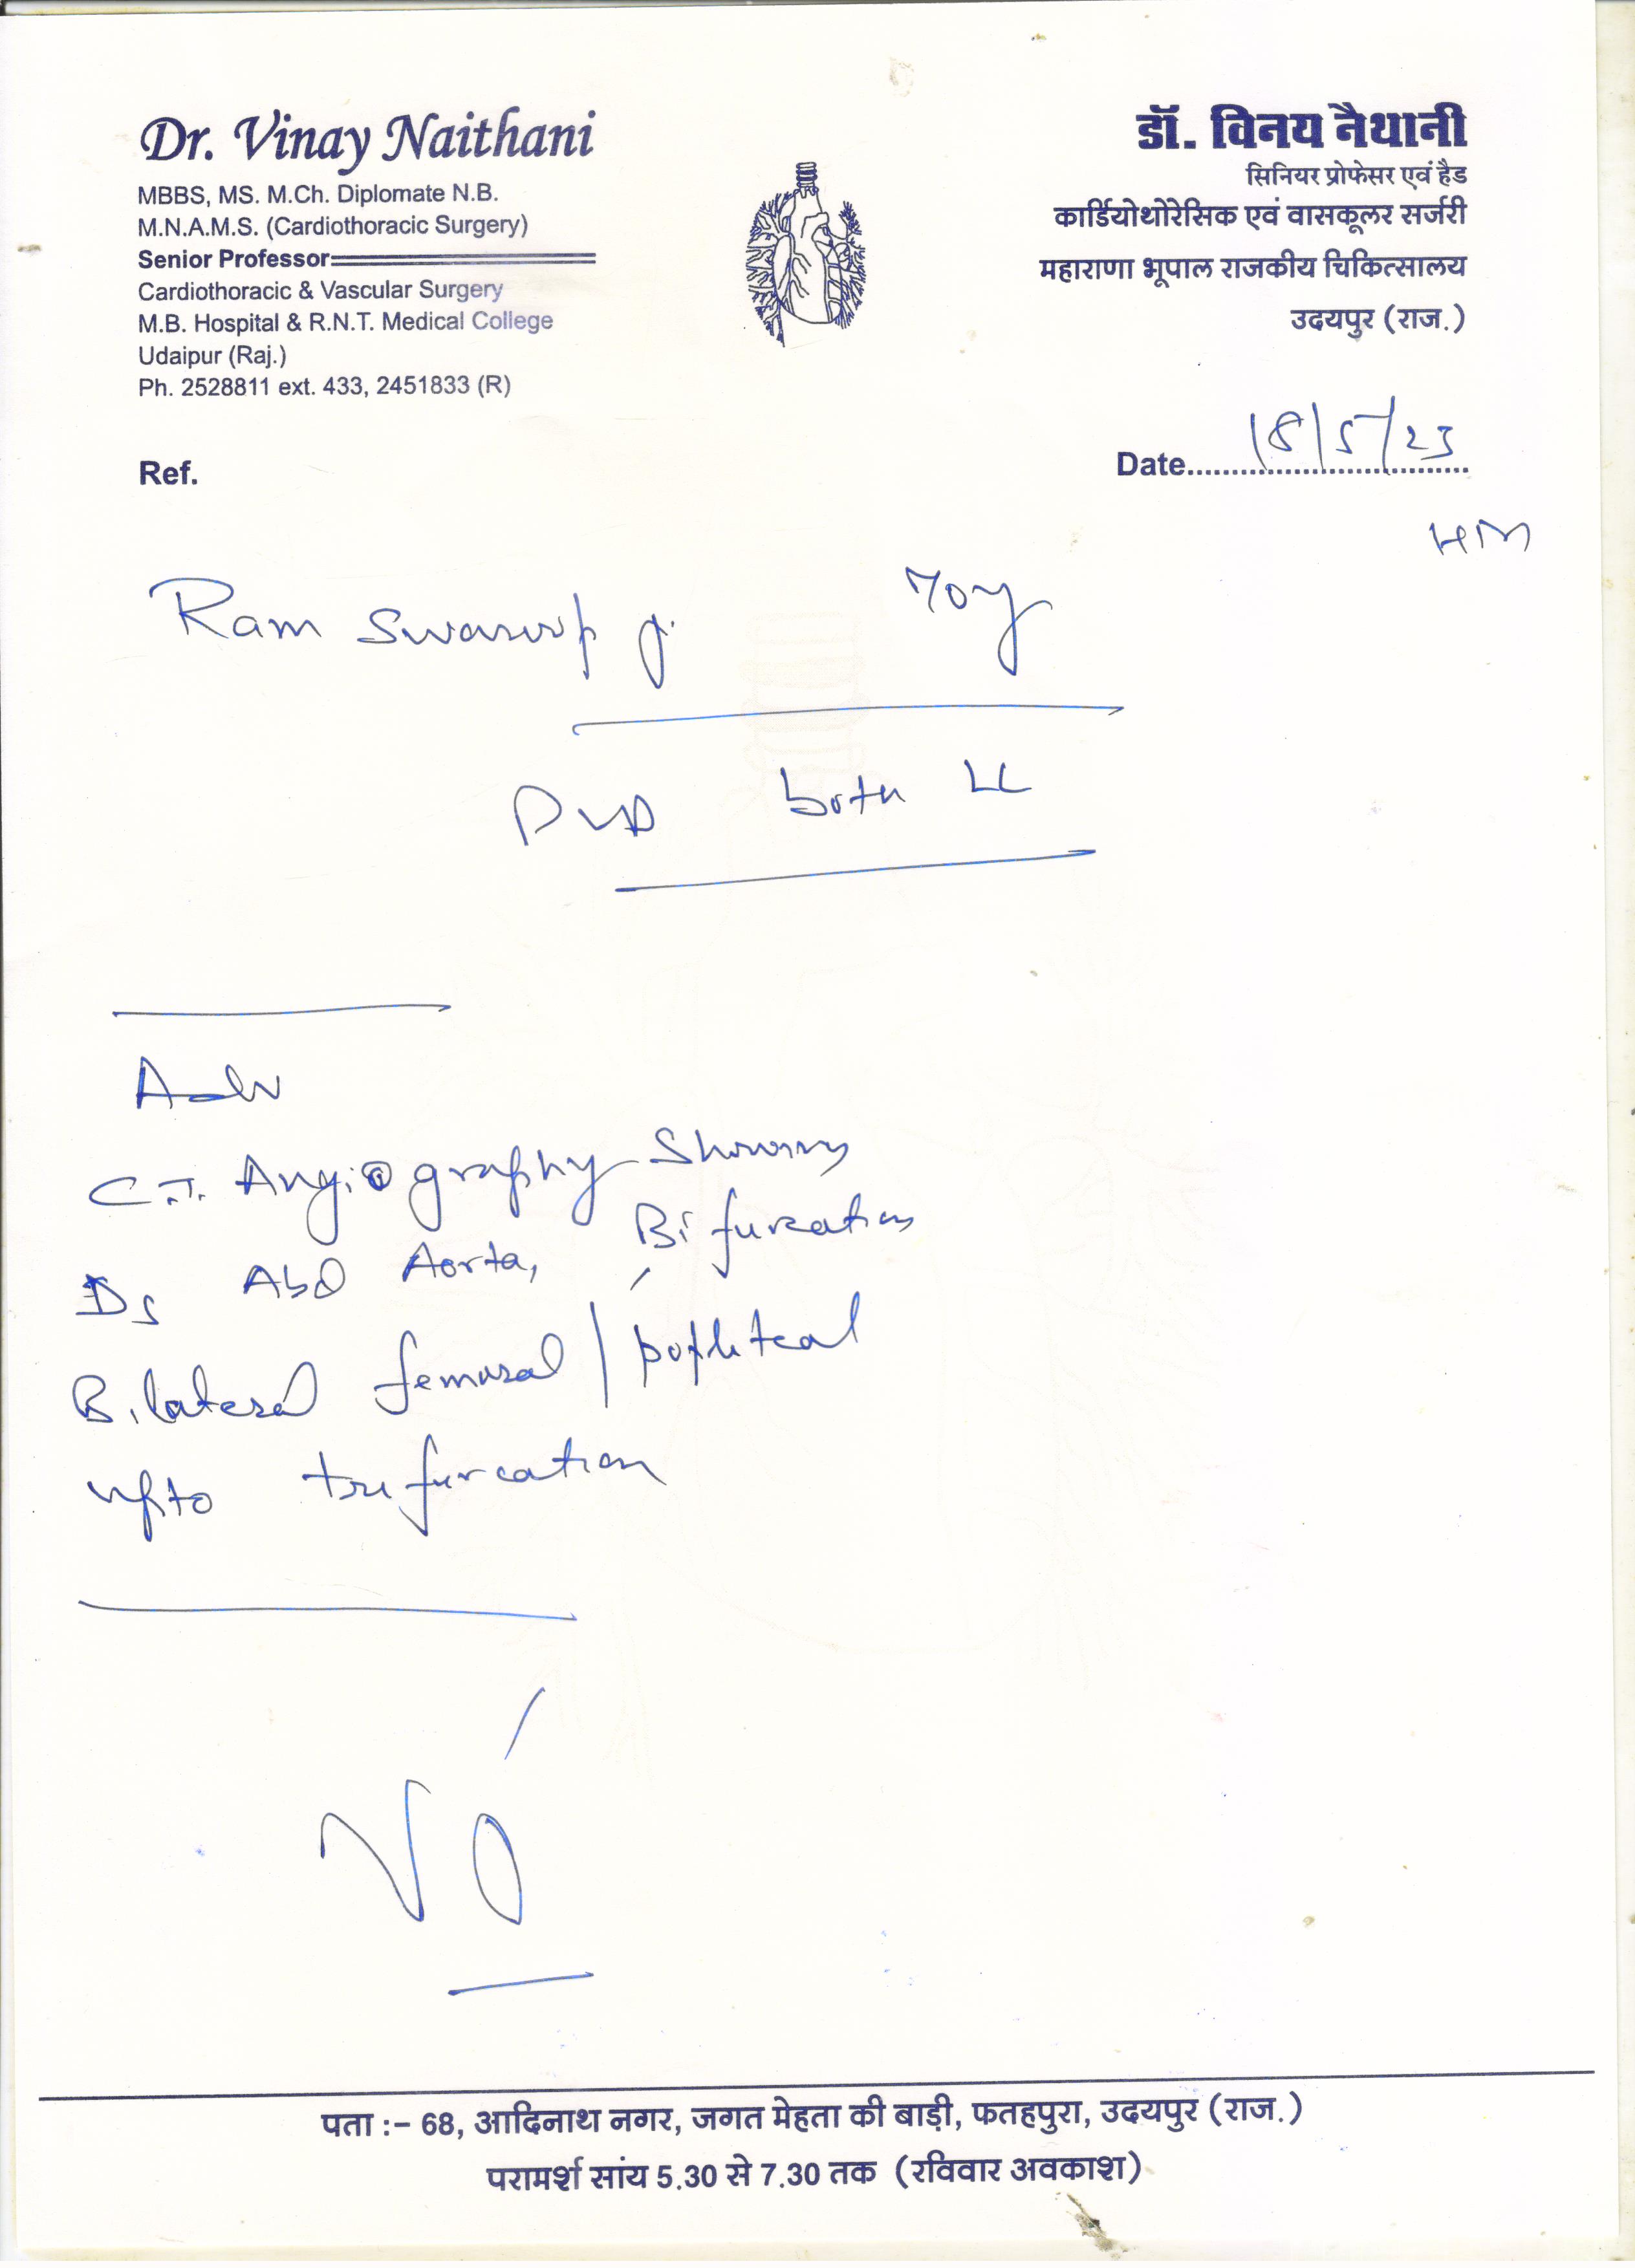 Dr. Vinay Naithani
MBBS, MS. M.Ch. Diplomate N.B.
M.N.A.M.S. (Cardiothoracic Surgery)
Senior Professor
Cardiothoracic & Vascular Surgery
M.B. Hospital & R.N.T. Medical College
Udaipur (Raj.)
Ph. 2528811 ext. 433, 2451833 (R)
डॉ. विनय नैथानी
सिनियर प्रोफेसर एवं हैड
कार्डियोथोरेसिक एवं वासकूलर सर्जरी
महाराणा भूपाल राजकीय चिकित्सालय
उदयपुर (राज.)
Ref.
Date 18/5/23
Ram Swaroop J. 70y
PVD both LL
Adv
C.T. Angiography Showing
Ds Abd Aorta, Bifurcation
Bilateral femoral / popliteal
upto trifurcation
पता :– 68, आदिनाथ नगर, जगत मेहता की बाड़ी, फतहपुरा, उदयपुर (राज.)
परामर्श सांय 5.30 से 7.30 तक (रविवार अवकाश)